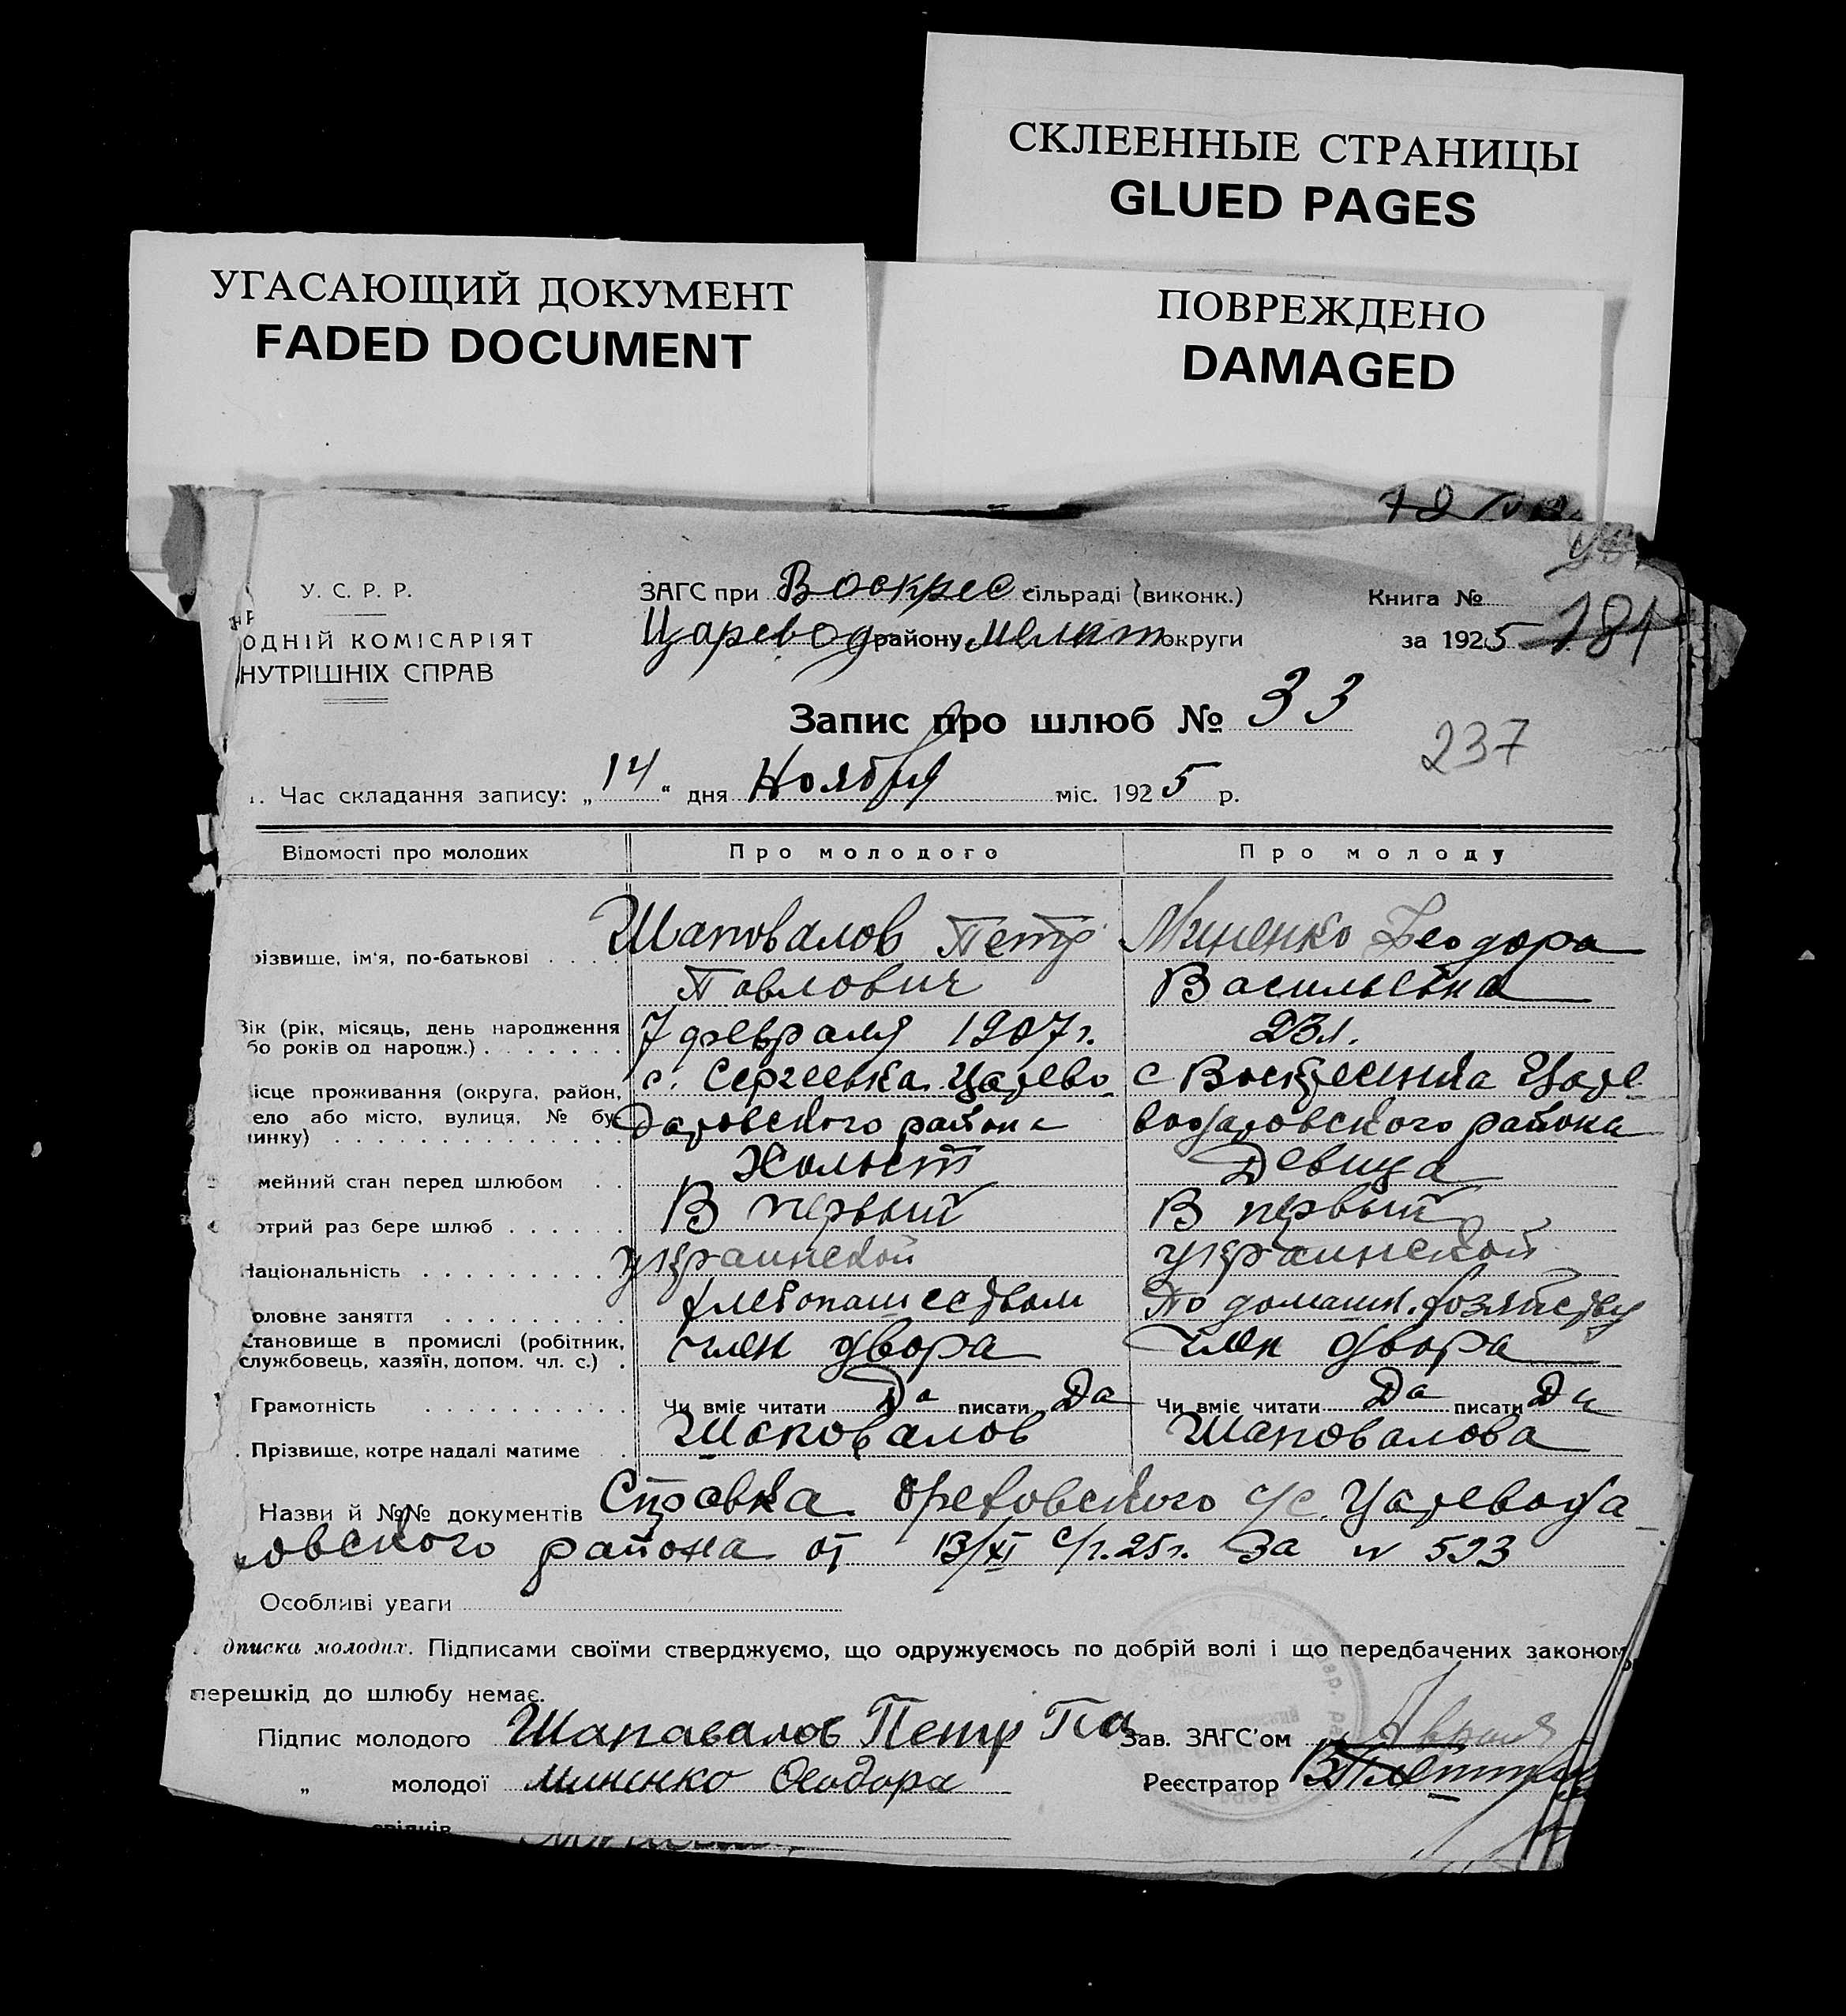 СКЛЕЕННЫЕ СТРАНИЦЫ
GLUED PAGES
УГАСАЮЩИЙ ДОКУМЕНТ
FADED DOCUMENT
ПОВРЕЖДЕНО
DAMAGED
У. С. Р. Р.
ОДНІЙ КОМІСАРІЯТ
НУТРІШНІХ СПРАВ
ЗАГС при Воскрес сільраді (виконк.)
Царевод району Мелит округи
Книга №
за 1925 181
Запис про шлюб № 33
237
Час складання запису: „14“ дня Ноября міс. 1925 р.
Відомості про молодих Про молодого Про молоду
різвище, ім'я, по-батькові Шаповалов Петр Миненко Феодора
Павлович Васильевна
Вік (рік, місяць, день народження або років од народж.) 7 февраля 1907 г. 23 л.
ісце проживання (округа, район, село або місто, вулиця, № будинку) с. Сергеевка Царево- с Воскресенка Царе-
даровского района водаровского района
мейний стан перед шлюбом Холост Девица
отрий раз бере шлюб В первый В первый
Національність украинской украинской
оловне заняття хлебопашеством По домашн. хозяйству
Становище в промислі (робітник, службовець, хазяїн, допом. чл. с.) член двора член двора
Грамотність Чи вміє читати Да писати Да Чи вміє читати Да писати Да
Прізвище, котре надалі матиме Шаповалов Шаповалова
Назви й №№ документів Справка Ореховского с/с. Царевода-
ровского района от 13/XI с/г. 25 г. за № 593
Особливі уваги
дписка молодих. Підписами своїми стверджуємо, що одружуємось по добрій волі і що передбачених законом
перешкід до шлюбу немає.
Підпис молодого Шапавалов Петр Па Зав. ЗАГС'ом
„ молодої Миненко Феодора Реєстратор
свідків